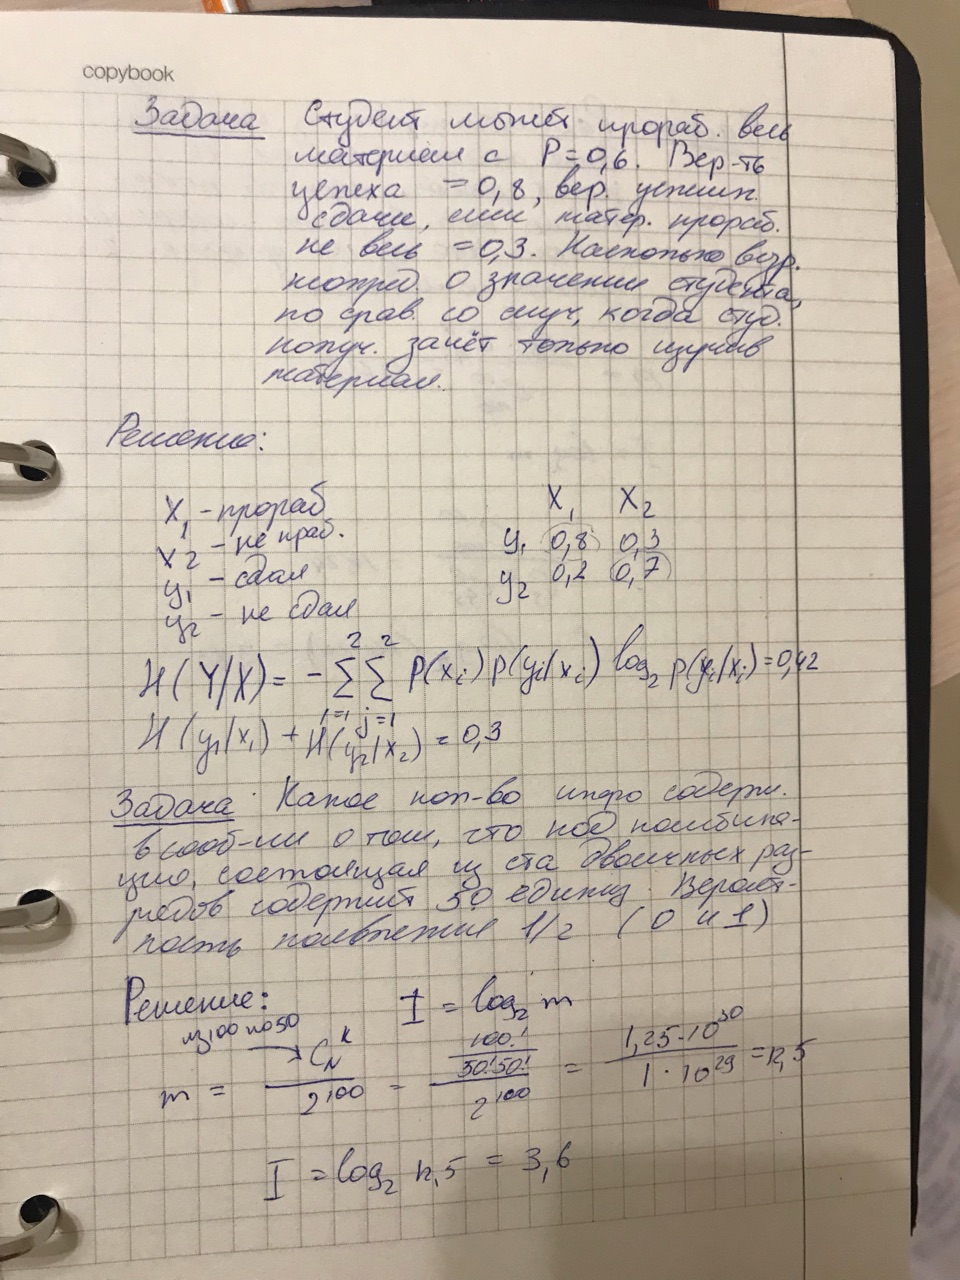 copybook
Задача Студент может прораб. весь
материал с P=0,6. Вер-ть
успеха =0,8, вер. успешн.
сдачи, если матер. прораб.
не весь =0,3. Насколько возр.
неопред. о значении студента,
по срав. со случ, когда студ.
получ. зачёт только изучив
материал.
Решение:
X1 - прораб
X2 - не праб.
y1 - сдал
y2 - не сдал
X1 X2
y1 0,8 0,3
y2 0,2 0,7
H(Y/X) = - 2∑i=1 2∑j=1 P(xi) p(yi/xi) log2 p(yi/xi) = 0,42
H(y1/x1) + H(y2/x2) = 0,3
Задача Какое кол-во инфо содерж.
в сооб-ии о том, что код комбина-
цию, состоящая из ста двоичных раз-
рядов содержит 50 единиц. Вероят-
ность появления 1/2 (0 и 1)
Решение: I = log2 m
из 100 по 50
m = CNK / 2^100 = (100! / 50!50!) / 2^100 = 1,25·10^30 / 1·10^29 = 12,5
I = log2 12,5 = 3,6